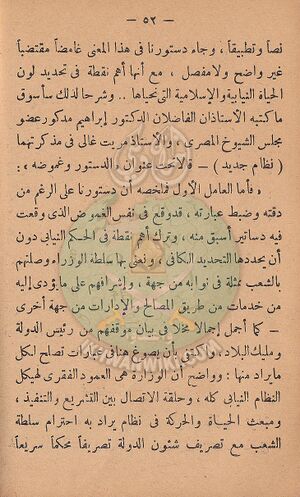 — ٥٢ —
نصاً وتطبيقاً ، وجاء دستورنا في هذا المعنى غامضاً مقتضباً
غير واضح ولا مفصل ، مع أنها أهم نقطة في تحديد لون
الحياة النيابية والإسلامية التى نحياها .. وشرحاً لذلك سأسوق
ما كتبه الأستاذان الفاضلان الدكتور إبراهيم مدكور عضو
مجلس الشيوخ المصرى ، والأستاذ مريت غالى في مذكرتهما
( نظام جديد ) — قالا تحت عنوان . الدستور وغموضه ، :
« فأما العامل الأول فملخصه أن دستورنا على الرغم من
دقته وضبط عبارته ، قد وقع في نفس الغموض الذى وقعت
فيه دساتير أسبق منه ، وترك أهم نقطة في الحكم النيابى دون
أن يحددها التحديد الكافى ، ونعنى بها سلطة الوزراء وصلتهم
بالشعب ممثلة في نوابه من جهة ، وإشرافهم على ما يؤدى إليه
من خدمات من طريق المصالح والإدارات من جهة أخرى
— كما أجمل إجمالا مخلا في بيان موقفهم من رئيس الدولة
ومليك البلاد . واكتفى بأن يصوغ هنا في عبارات تصلح لكل
ما يراد منها : وواضح أن الوزارة هى العمود الفقرى لهيكل
النظام النيابى كله ، وحلقة الاتصال بين التشريع والتنفيذ ،
ومبعث الحياة والحركة في نظام يراد به احترام سلطة
الشعب مع تصريف شئون الدولة تصريفاً محكماً سريعاً